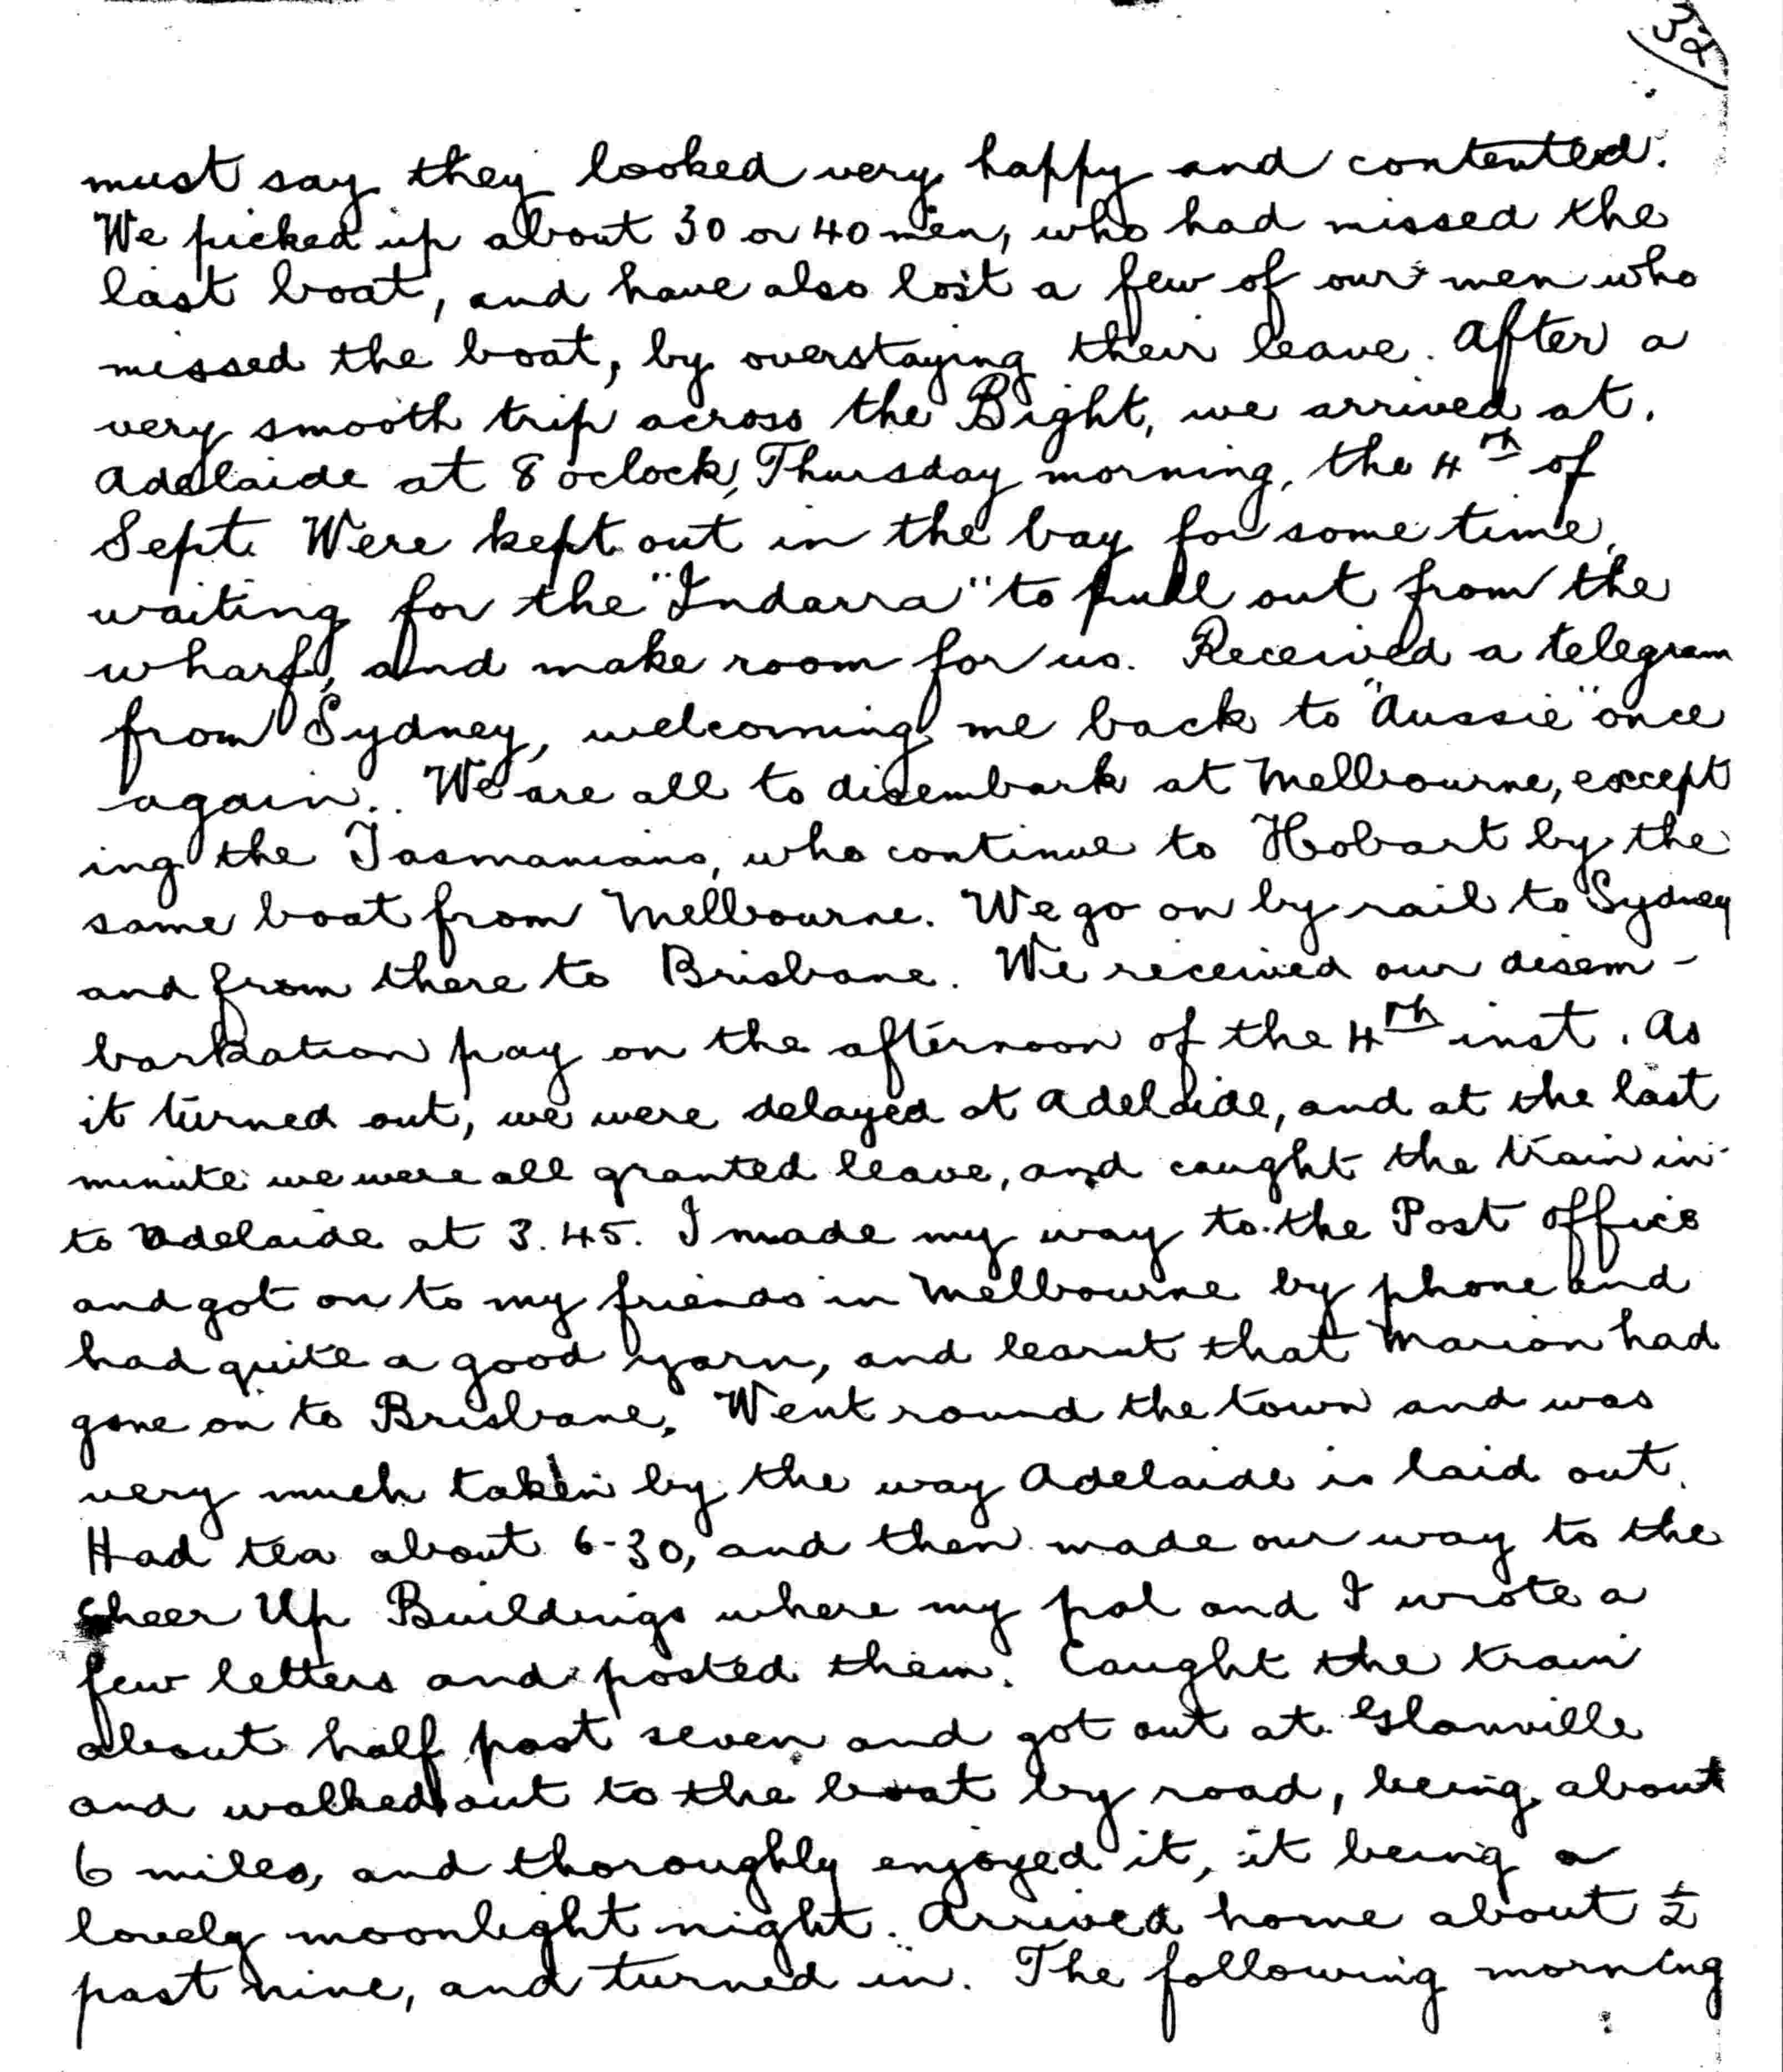 32
must say they looked very happy and contented.
We picked up about 30 or 40 men, who had missed the
last boat, and have also lost a few of our men who
missed the boat, by overstaying their leave. After a
very smooth trip across the Bight, we arrived at.
Adelaide at 8 oclock, Thursday morning, the 4th of
Sept. Were kept out in the bay for some time,
waiting for the "Indarra" to pull out from the
wharf, and make room for us. Received a telegram
from Sydney, welcoming me back to "Aussie" once
again.. We are all to disembark at Melbourne, except
ing the Tasmanians, who continue to Hobart by the
same boat from Melbourne. We go on by rail to Sydney
and from there to Brisbane. We received our disem-
barkation pay on the afternoon of the 4th inst. As
it turned out, we were delayed at Adelaide, and at the last
minute we were all granted leave, and caught the train in-
to Adelaide at 3.45. I made my way to the Post Office
and got on to my friends in Melbourne by phone and
had quite a good yarn, and learnt that Marion had
gone on to Brisbane. Went round the town and was
very much taken by the way Adelaide is laid out.
Had tea about 6-30, and then made our way to the
Cheer Up Buildings where my pal and I wrote a
few letters and posted them. Caught the train
about half past seven and got out at Glanville
and walked out to the boat by road, being about
6 miles, and thoroughly enjoyed it, it being a
lovely moonlight night. Arrived home about ½
past nine, and turned in. The following morning